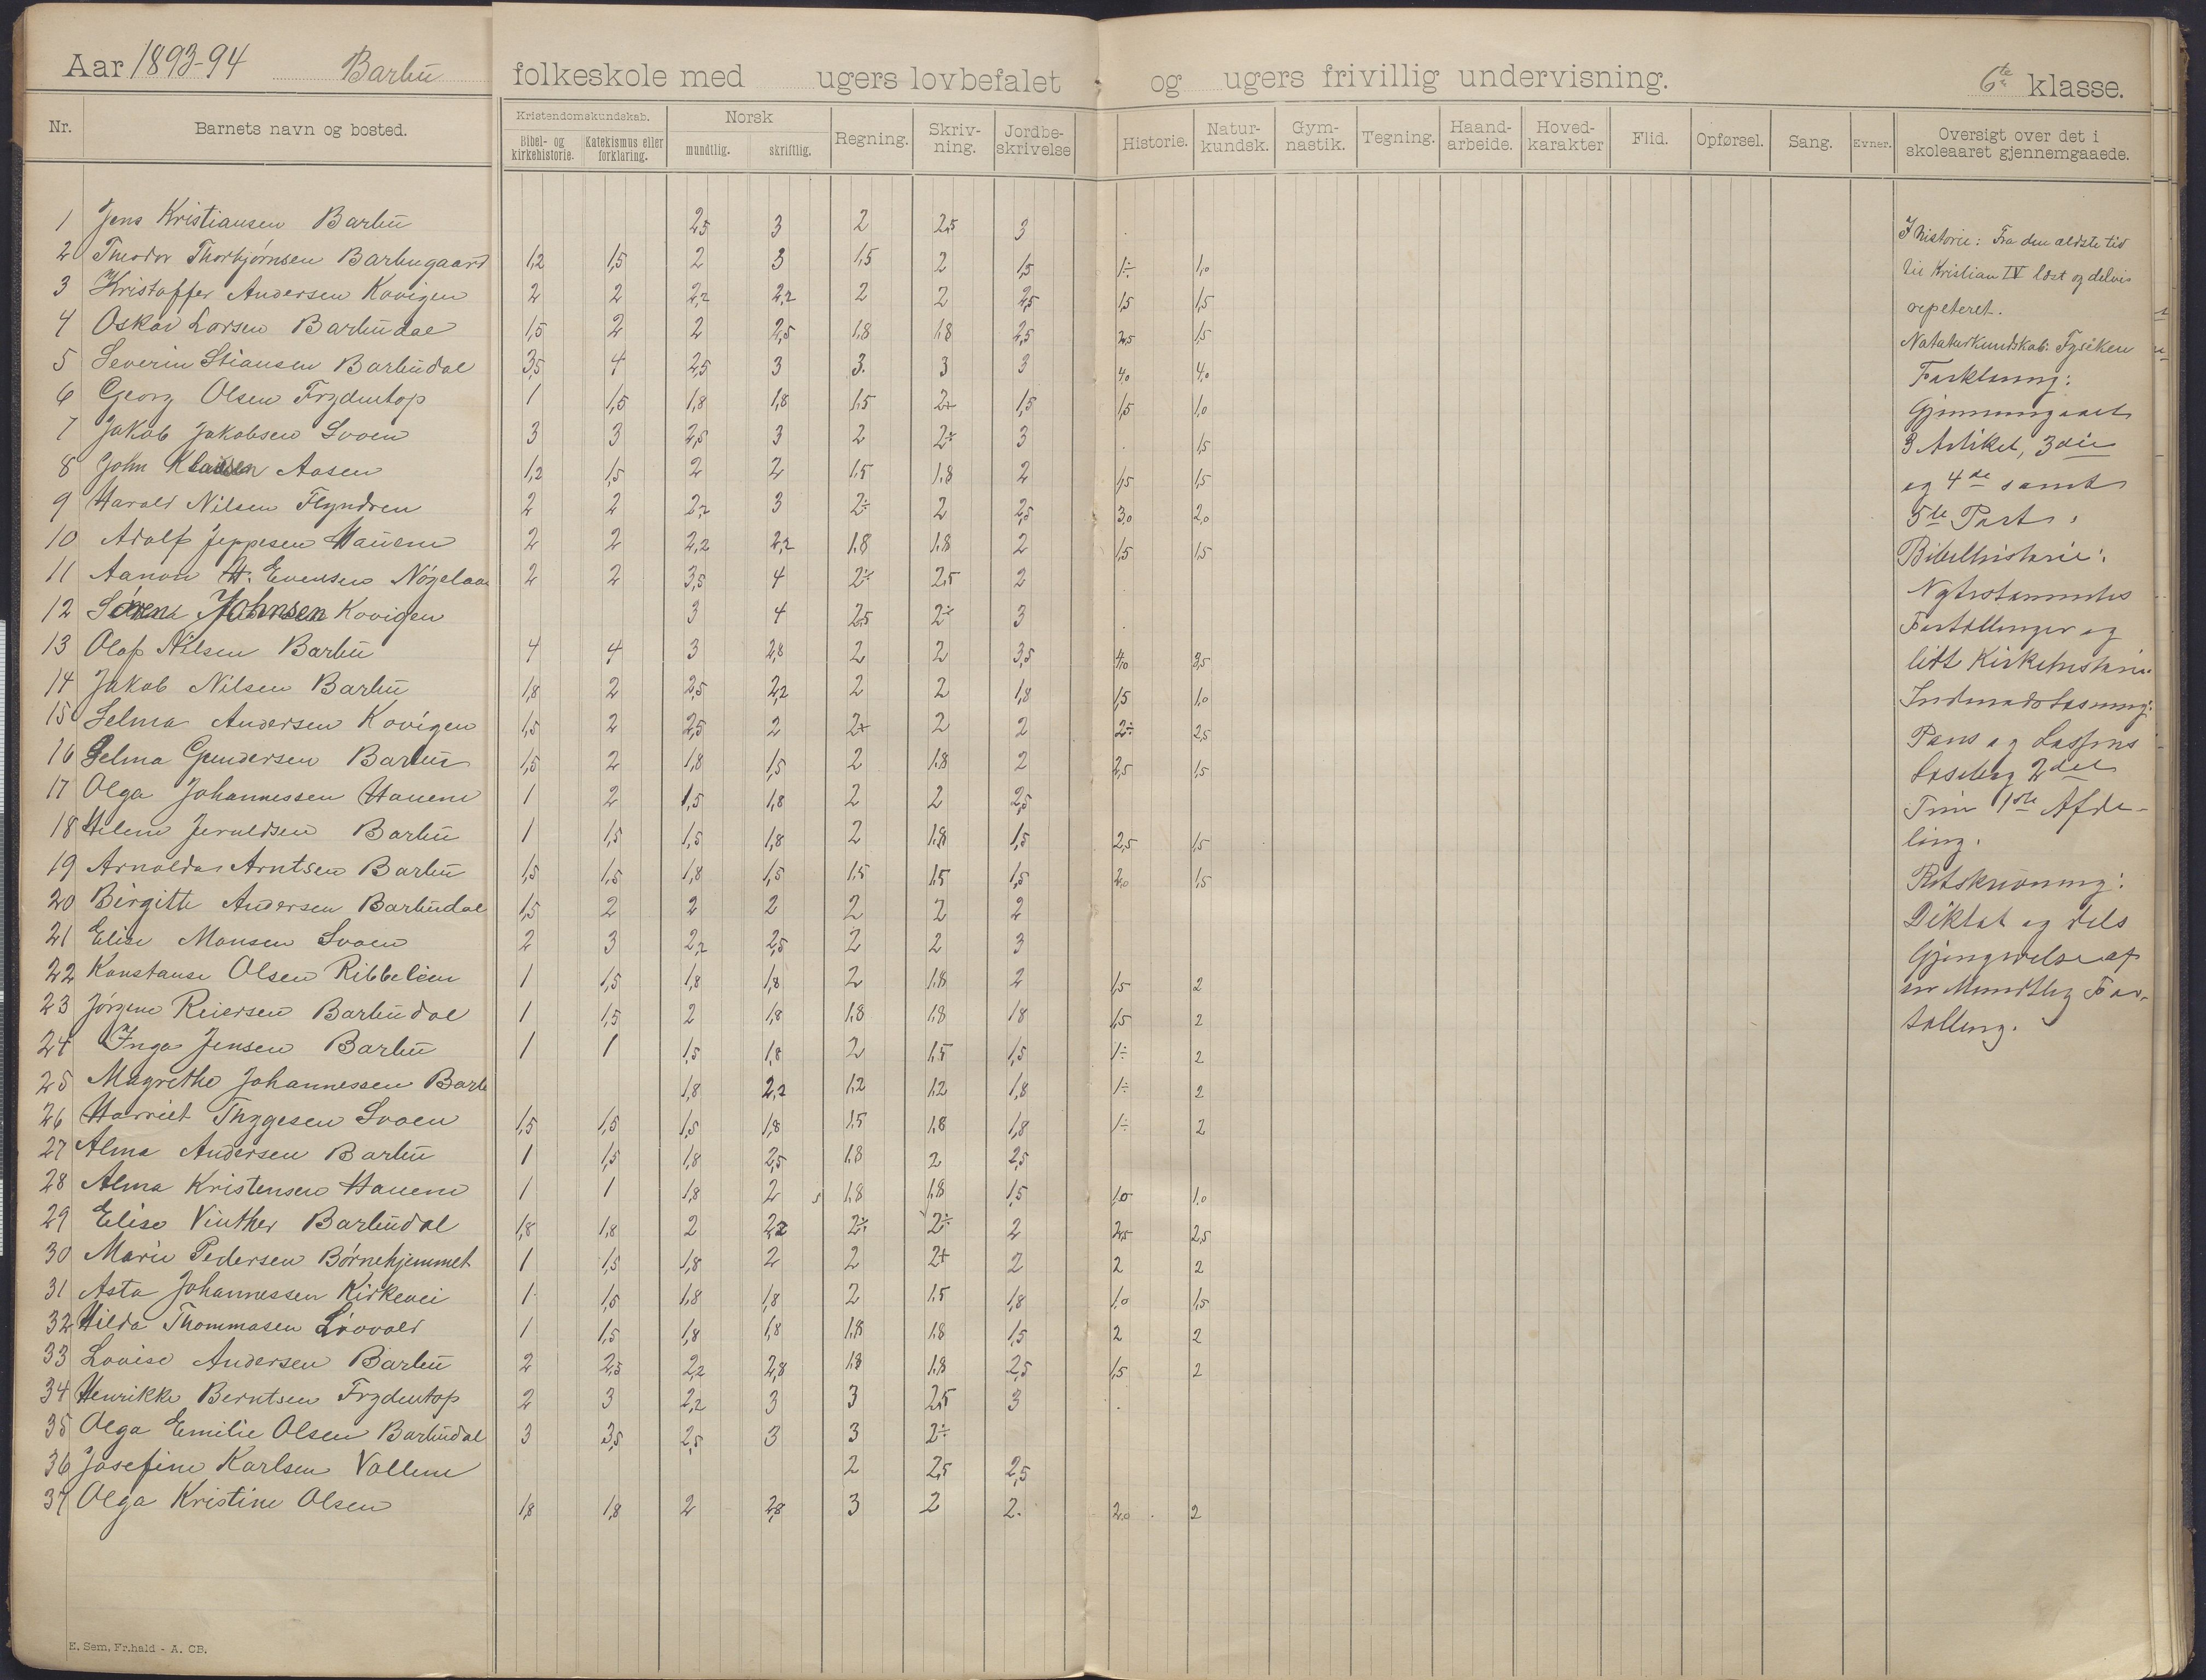 Aar 1893-94 Barbu folkeskole med ugers lovbefalet og ugers frivillig undervisning. 6te klasse.
Nr. Barnets navn og bosted. Kristendomskundskab. Bibel- og kirkehistorie. Katekismus eller forklaring. Norsk mundtlig. skriftlig. Regning. Skriv-ning. Jordbe-skrivelse Historie. Natur-kundsk. Gym-nastik. Tegning. Haand-arbeide. Hoved-karakter Flid. Opførsel. Sang. Evner. Oversigt over det i skoleaaret gjennemgaaede.
1 Jens Kristiansen Barbu 2,5 3 2 2,5 3
2 Theodor Thorbjørnsen Barbugaard 1,2 1,5 2 3 1,5 2 1,5 1÷ 1,0
3 Kristoffer Andersen Kovigen 2 2 2,2 2,2 2 2 2,5 1,5 1,5
4 Oskar Larsen Barbudal 1,5 2 2 2,5 1,8 1,8 2,5 2,5 1,5
5 Severin Stiansen Barbudal 3,5 4 2,5 3 3. 3 3 4,0 4,0
6 Georg Olsen Frydentop 1 1,5 1,8 1,8 1,5 2+ 1,5 1,5 1,0
7 Jakob Jakobsen Svoen 3 3 2,5 3 2 2÷ 3 . 1,5
8 John Klausen Aasen 1,2 1,5 2 2 1,5 1,8 2 1,5 1,5
9 Harald Nilsen Flyndren 2 2 2,2 3 2÷ 2 2,5 3,0 2,0
10 Adolf Jeppesen Hauene 2 2 2,2 2,2 1,8 1,8 2 1,5 1,5
11 Aanon H. Evensen 2 2 3,5 4 2÷ 2,5 2
12 Johnsen Kovigen 3 4 2,5 2÷ 3
13 Olaf Nilsen Barbu 4 4 3 2,8 2 2 3,5 4,0 3,5
14 Jakob Nilsen Barbu 1,8 2 2,5 2,2 2 2 1,8 1,5 1,0
15 Selma Andersen Kovigen 1,5 2 2,5 2 2+ 2 2 2÷ 2,5
16 Selma Gundersen Barbu 1,5 2 1,8 1,5 2 1,8 2 2,5 1,5
17 Olga Johannessen Hauene 1 2 1,5 1,8 2 2 2,5
18 Helene Jeruldsen Barbu 1 1,5 1,5 1,8 2 1,8 1,5 2,5 1,5
19 Arnolda Arntsen Barbu 1,5 1,5 1,8 1,5 1,5 1,5 1,5 2,0 1,5
20 Birgitte Andersen Barbudal 1,5 2 2 2 2 2 2
21 Elise Monsen Svoen 2 3 2,2 2,5 2 2 3
22 Konstanse Olsen Ribbelien 1 1,5 1,8 1,8 2 1,8 2 1,5 2
23 Jørgine Reiersen Barbudal 1 1,5 2 1,8 1,8 1,8 1,8 1,5 2
24 Inga Jensen Barbu 1 1 1,5 1,8 2 1,5 1,5 1÷ 2
25 Magrethe Johannessen Barb 1,8 2,2 1,2 1,2 1,8 1÷ 2
26 Harriet Thygesen Svoen 1,5 1,5 1,5 1,8 1,5 1,8 1,8 1÷ 2
27 Alma Andersen Barbu 1 1,5 1,8 2,5 1,8 2 2,5
28 Alma Kristensen Hauene 1 1 1,8 2 1,8 1,8 1,5 1,0 1,0
29 Elise Vinther Barbudal 1,8 1,8 2 2,2 2÷ 2÷ 2 2,5 2,5
30 Marie Pedersen Børnehjemmet 1 1,5 1,8 2 2 2+ 2 2 2
31 Asta Johannessen Kirkevei 1 1,5 1,8 1,8 2 1,5 1,8 1,0 1,5
32 Hilda Thommasen Lövold 1 1,5 1,8 1,8 1,8 1,8 1,5 2 2
33 Lovise Andersen Barbu 2 2,5 2,2 2,8 1,8 1,8 2,5 1,5 2
34 Henrikke Berntsen Frydentop 2 3 2,2 3 3 2,5 3 .
35 Olga Emilie Olsen Barbudal 3 3,5 2,5 3 3 2÷
36 Josefine Karlsen Vollene 2 2,5 2,5
37 Olga Kristine Olsen 1,8 1,8 2 2,8 3 2 2. 2,0 2
I historie: Fra den ældste tid
til Kristian IV læst og delvis
repeteret.
Nataturkundskab: Fysiken
Forklaring:
Gjennemgaaet
3 Artikel, 3die
og 4de samt
5te Part.
Bibelhistorie:
Nytestamentes
Fortællinger og
lidt Kirkehistorie.
Indenadslæsning:
Pauss og Lassens
Læsebog 2den
Trin 1ste Afde-
ling.
Retskrivning:
Diktat og dels
Gjengivelse af
en Mundtlig For-
tælling.
E. Sem, Fr.hald - A. CB.